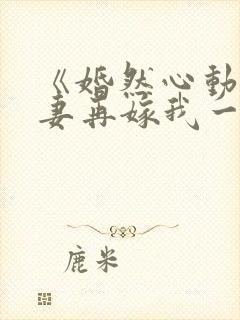 《婚然心动
妻再嫁我一
鹿米